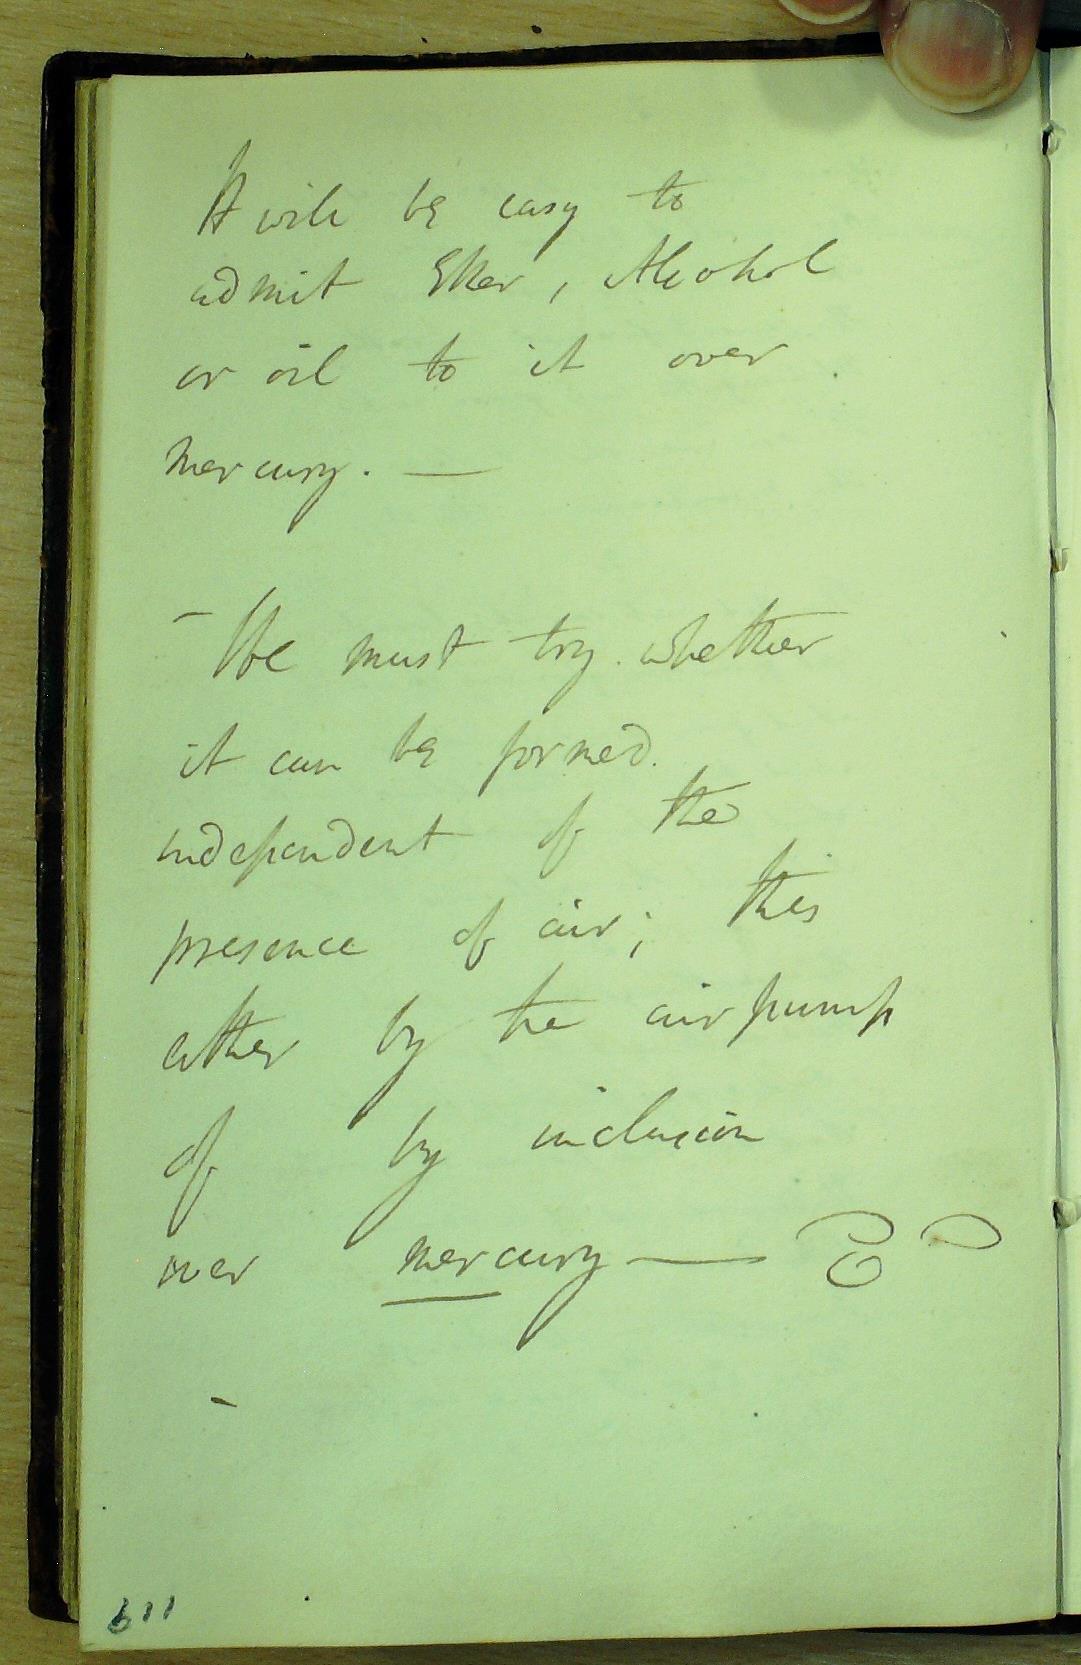 It will be easy to
admit Ether, Alcohol
or oil to it over
mercury. —
- We must try whether
it can be formed.
independent of the
presence of air; this
either by the air pump
of by inclusion
over mercury —
119